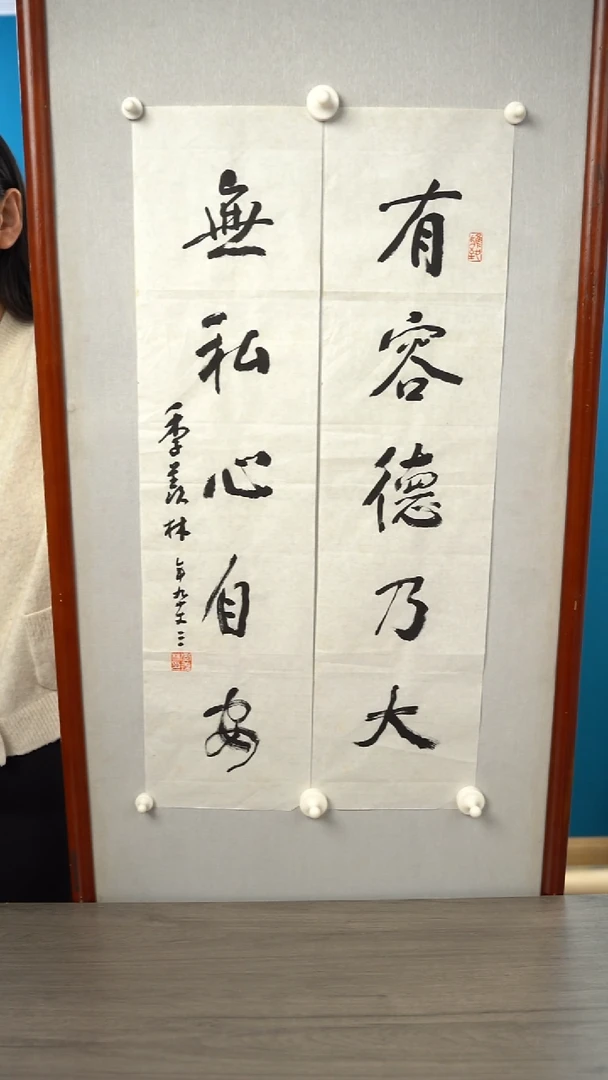 有容德乃大
無私心自安
季羨林
年九十又三